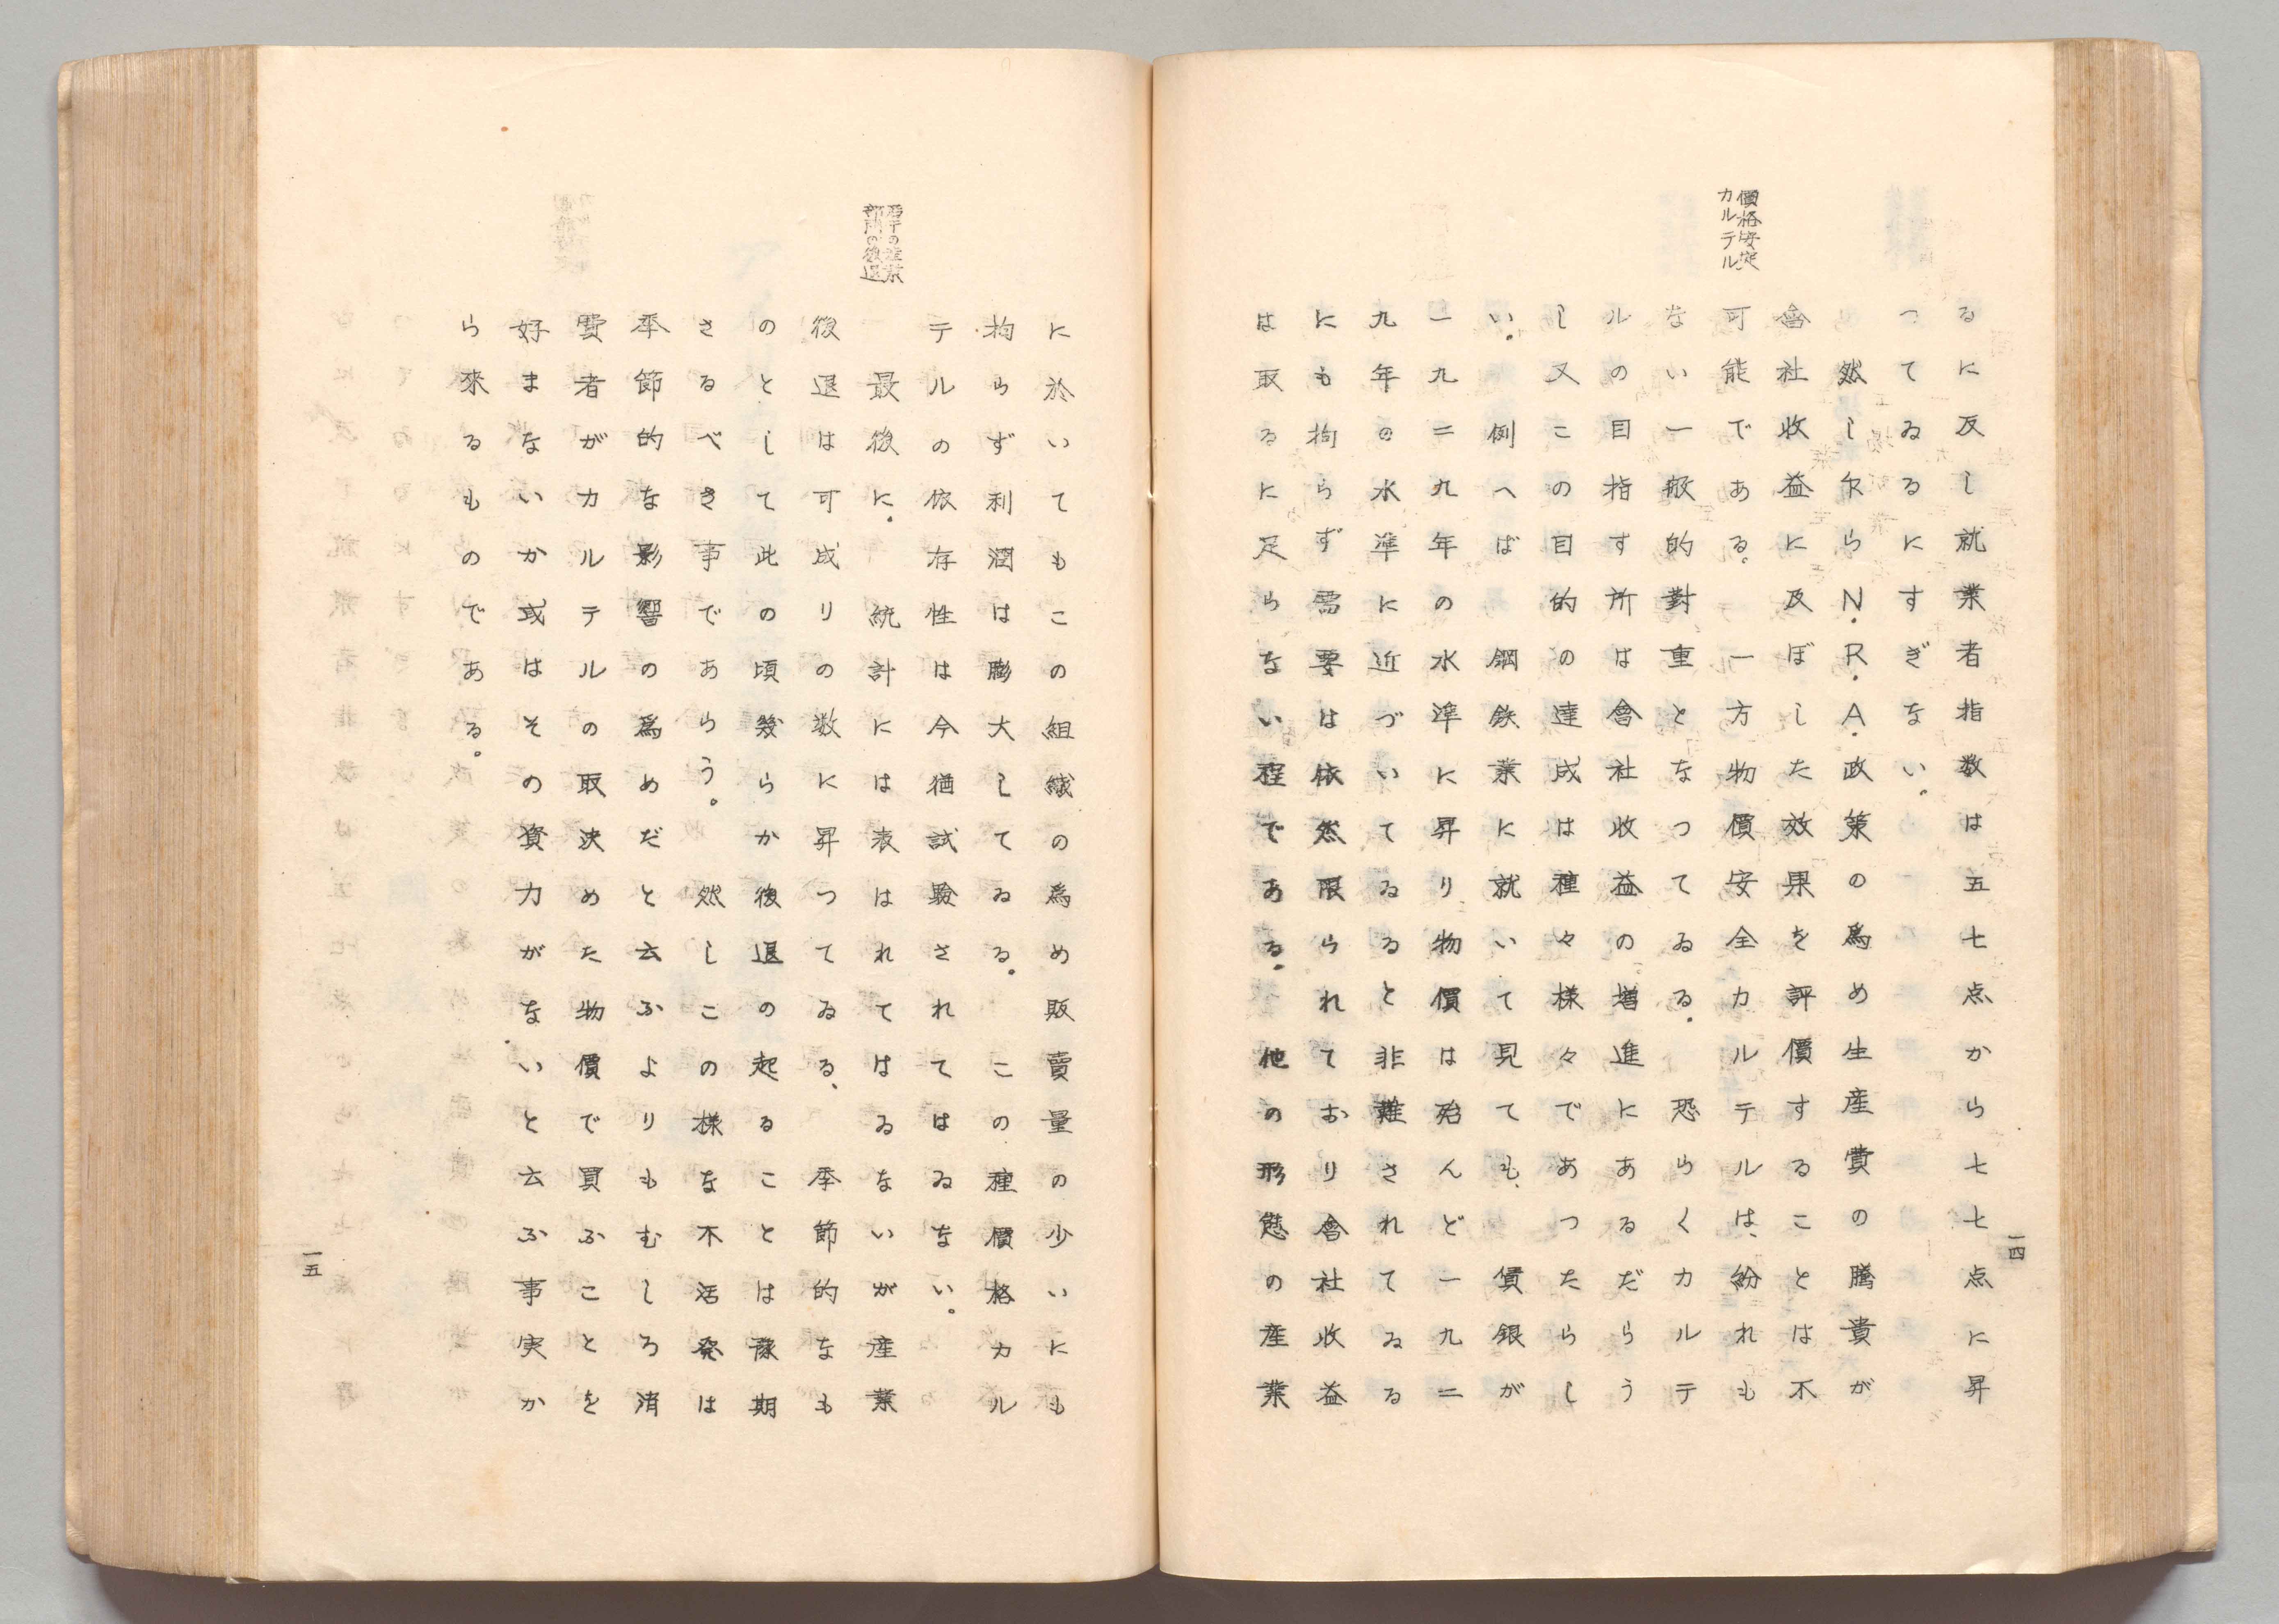 るに反し就業者指数は五七点から七七点に昇
つてゐるにすぎない。
然し乍らN.R.A.政策の爲め生産賞の騰貴が
會社收益に及ぼした效果を評價することは不
價格安定
カルテル
可能である。一方物價安全カルテルは、紛れも
ない一般的對重となつてゐる。恐らくカルテ
ルの目指す所は會社收益の増進にあるだらう
し又この目的の達成は種々様々であつたらし
い。例へば鋼鉄業に就いて見ても、賃銀が
一九二九年の水準に昇り物價は殆んど一九二
九年の水準に近づいてゐると非難されてゐる
にも拘らず需要は依然限られており會社收益
は取るに足らない程である。他の形態の産業
一四
に於いてもこの組織の爲め販賣量の少いにも
拘らず利潤は膨大してゐる。この種價格カル
テルの依存性は今猶試験されてはゐない。
若干の産業
部門の後退
最後に、統計には表はれてはゐないが産業
後退は可成りの数に昇つてゐる、季節的なも
のとして此の頃幾らか後退の起ることは豫期
さるべき事であらう。然しこの様な不活発は
季節的な影響の爲めだと云ふよりもむしろ消
費者がカルテルの取決めた物價で買ふことを
好まないか或はその資力がないと云ふ事実か
ら來るものである。
一五